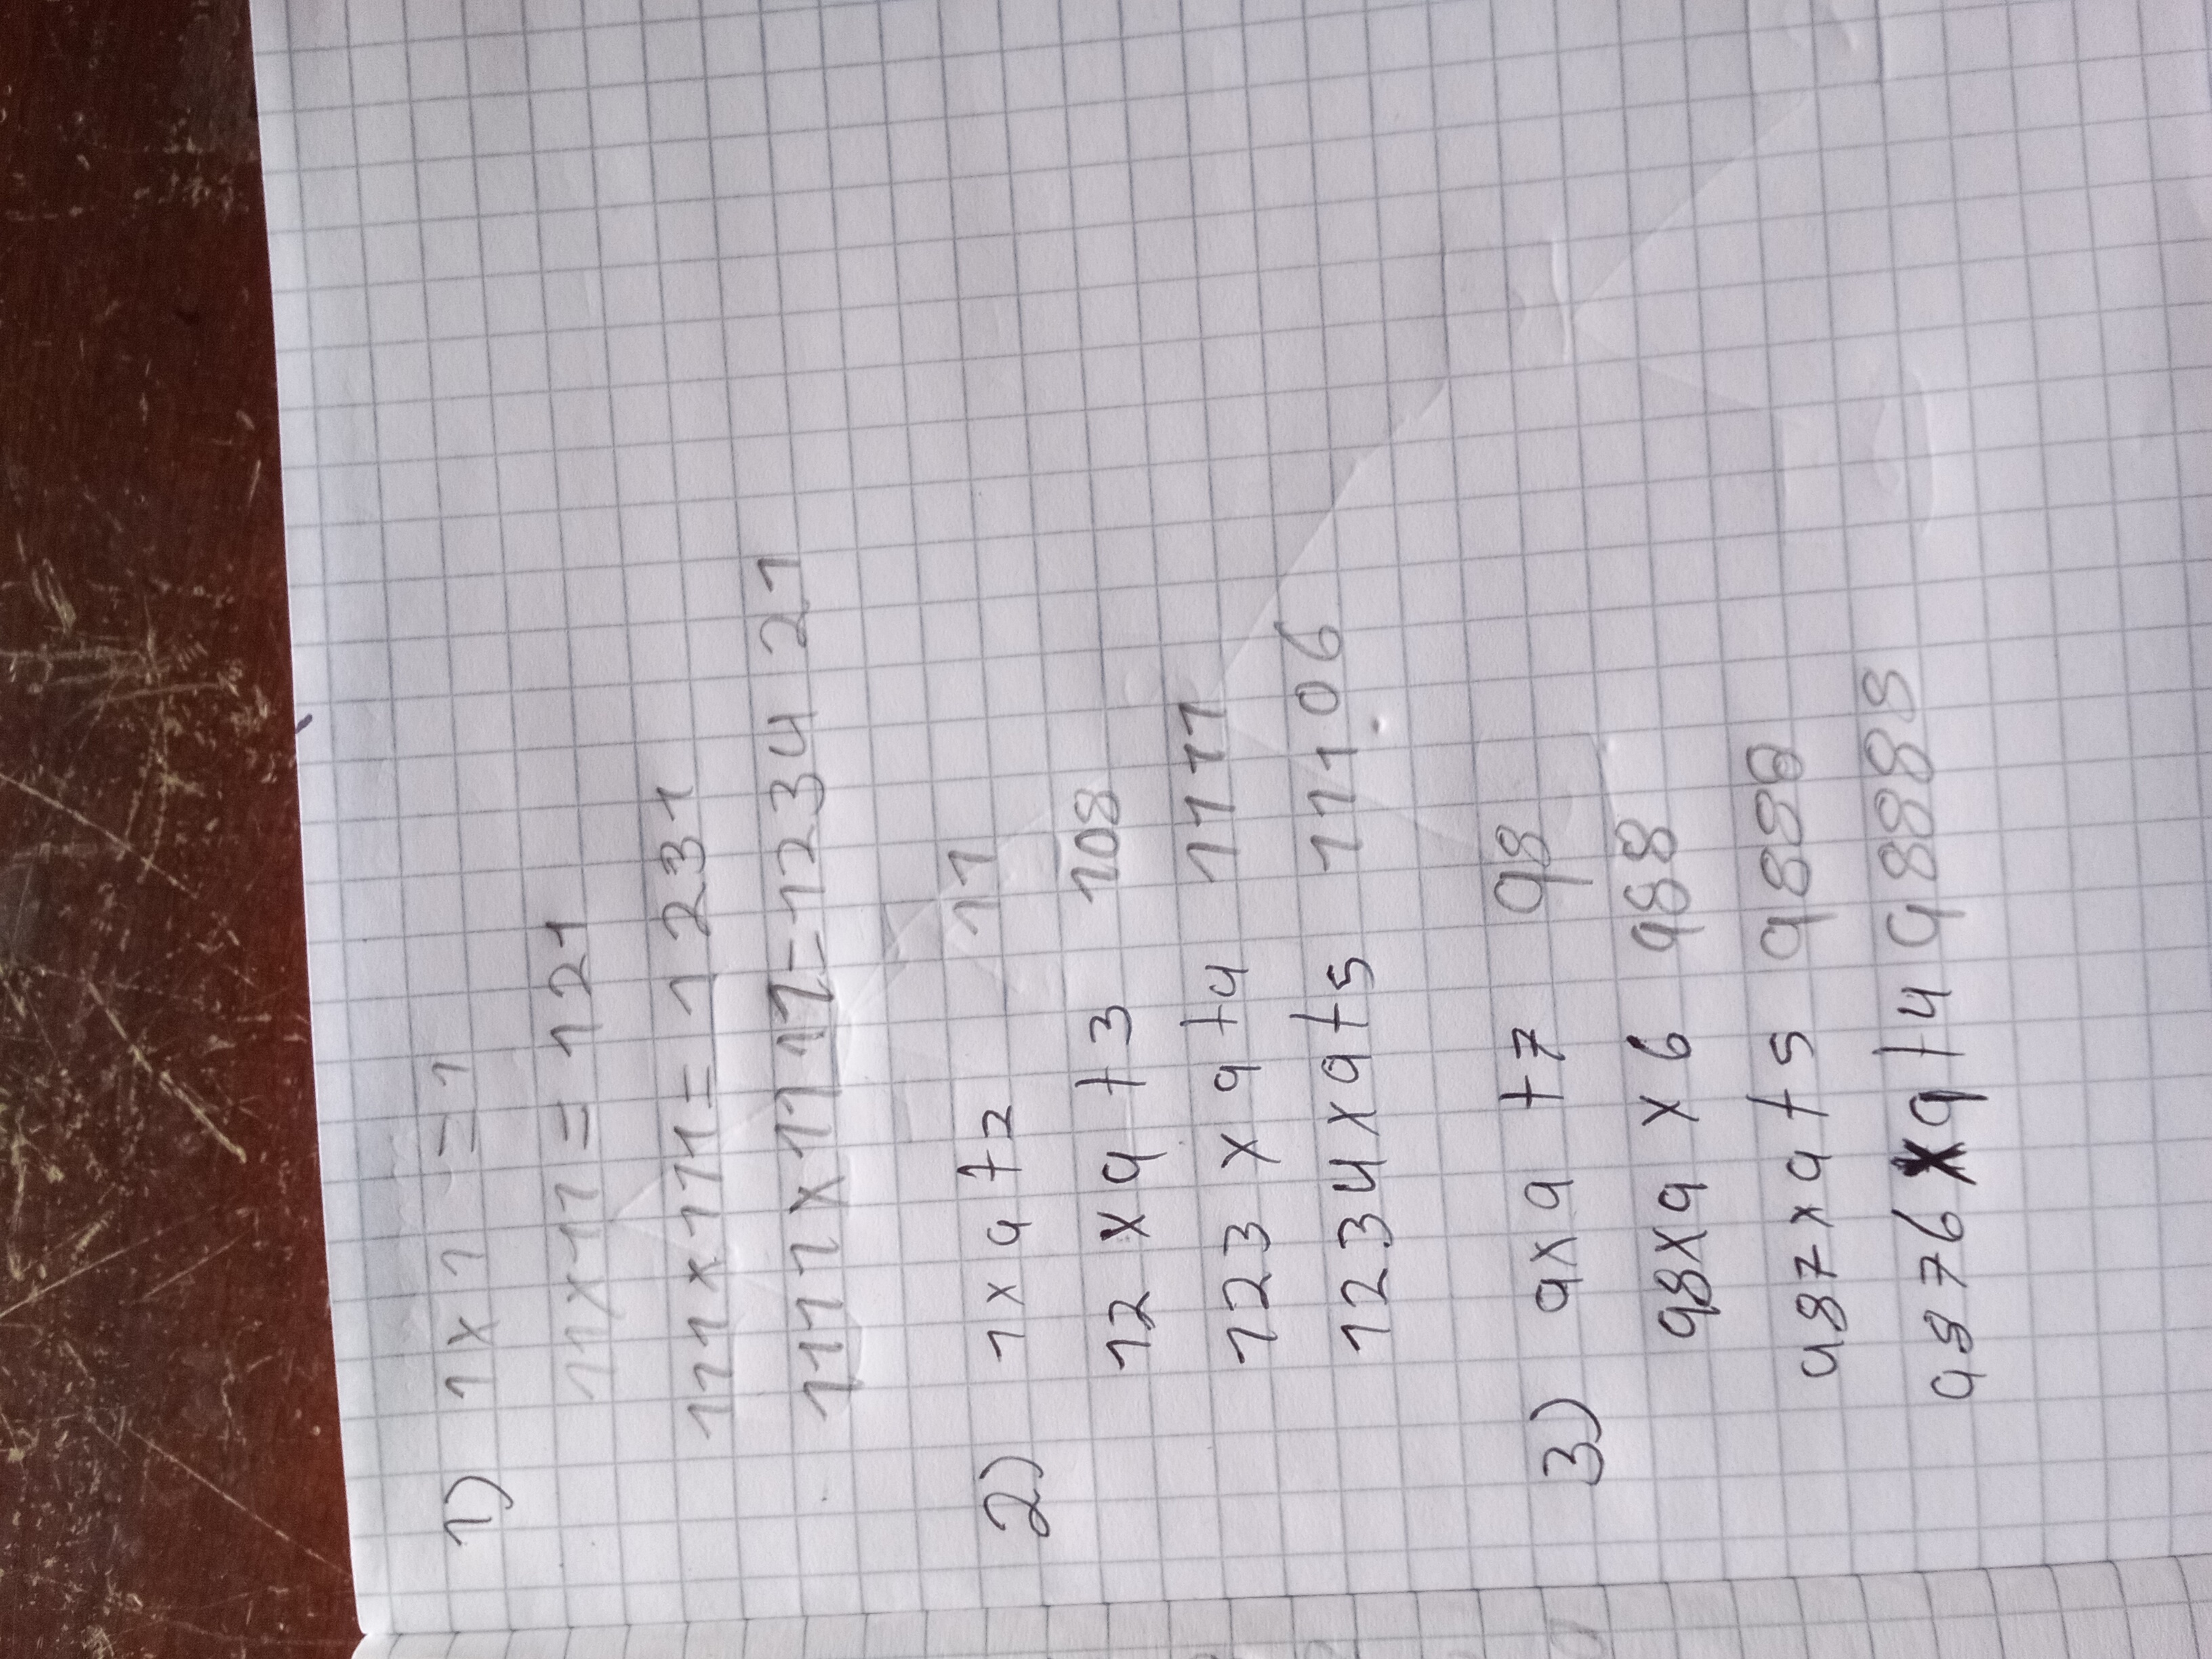 1) 1x1 = 1
11x11 = 121
111x111 = 1231
1111x1111=123421
2) 1x9+2 11
12x9+3 108
123x9+4 1111
1234x9+5 11106
3) 9x9+7 98
98x9x6 988
987x9+5 9888
9876x9+4 98888